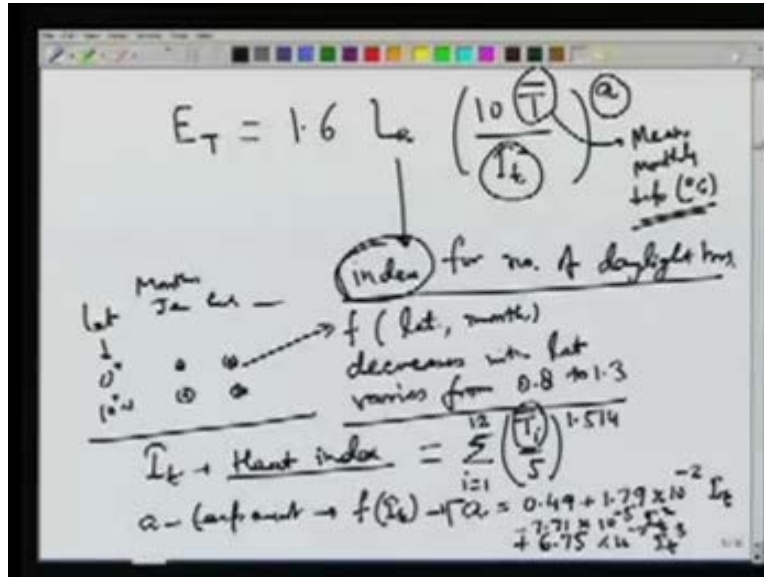 E_T = 1.6 L_a (10 T̄ / I_t)^a
Mean
monthly
temp (°C)
index for no. of daylight hrs.
Months
Jan
Lat
0°
10°N
f (lat, month)
decreases with lat
varies from 0.8 to 1.3
I_t → Heat index = Σ_{i=1}^{12} (T̄_i / 5)^{1.514}
a – exponent → f(I_t) → a = 0.49 + 1.79 × 10^{-2} I_t
- 7.71 × 10^{-5} I_t^2
+ 6.75 × 10^{-7} I_t^3